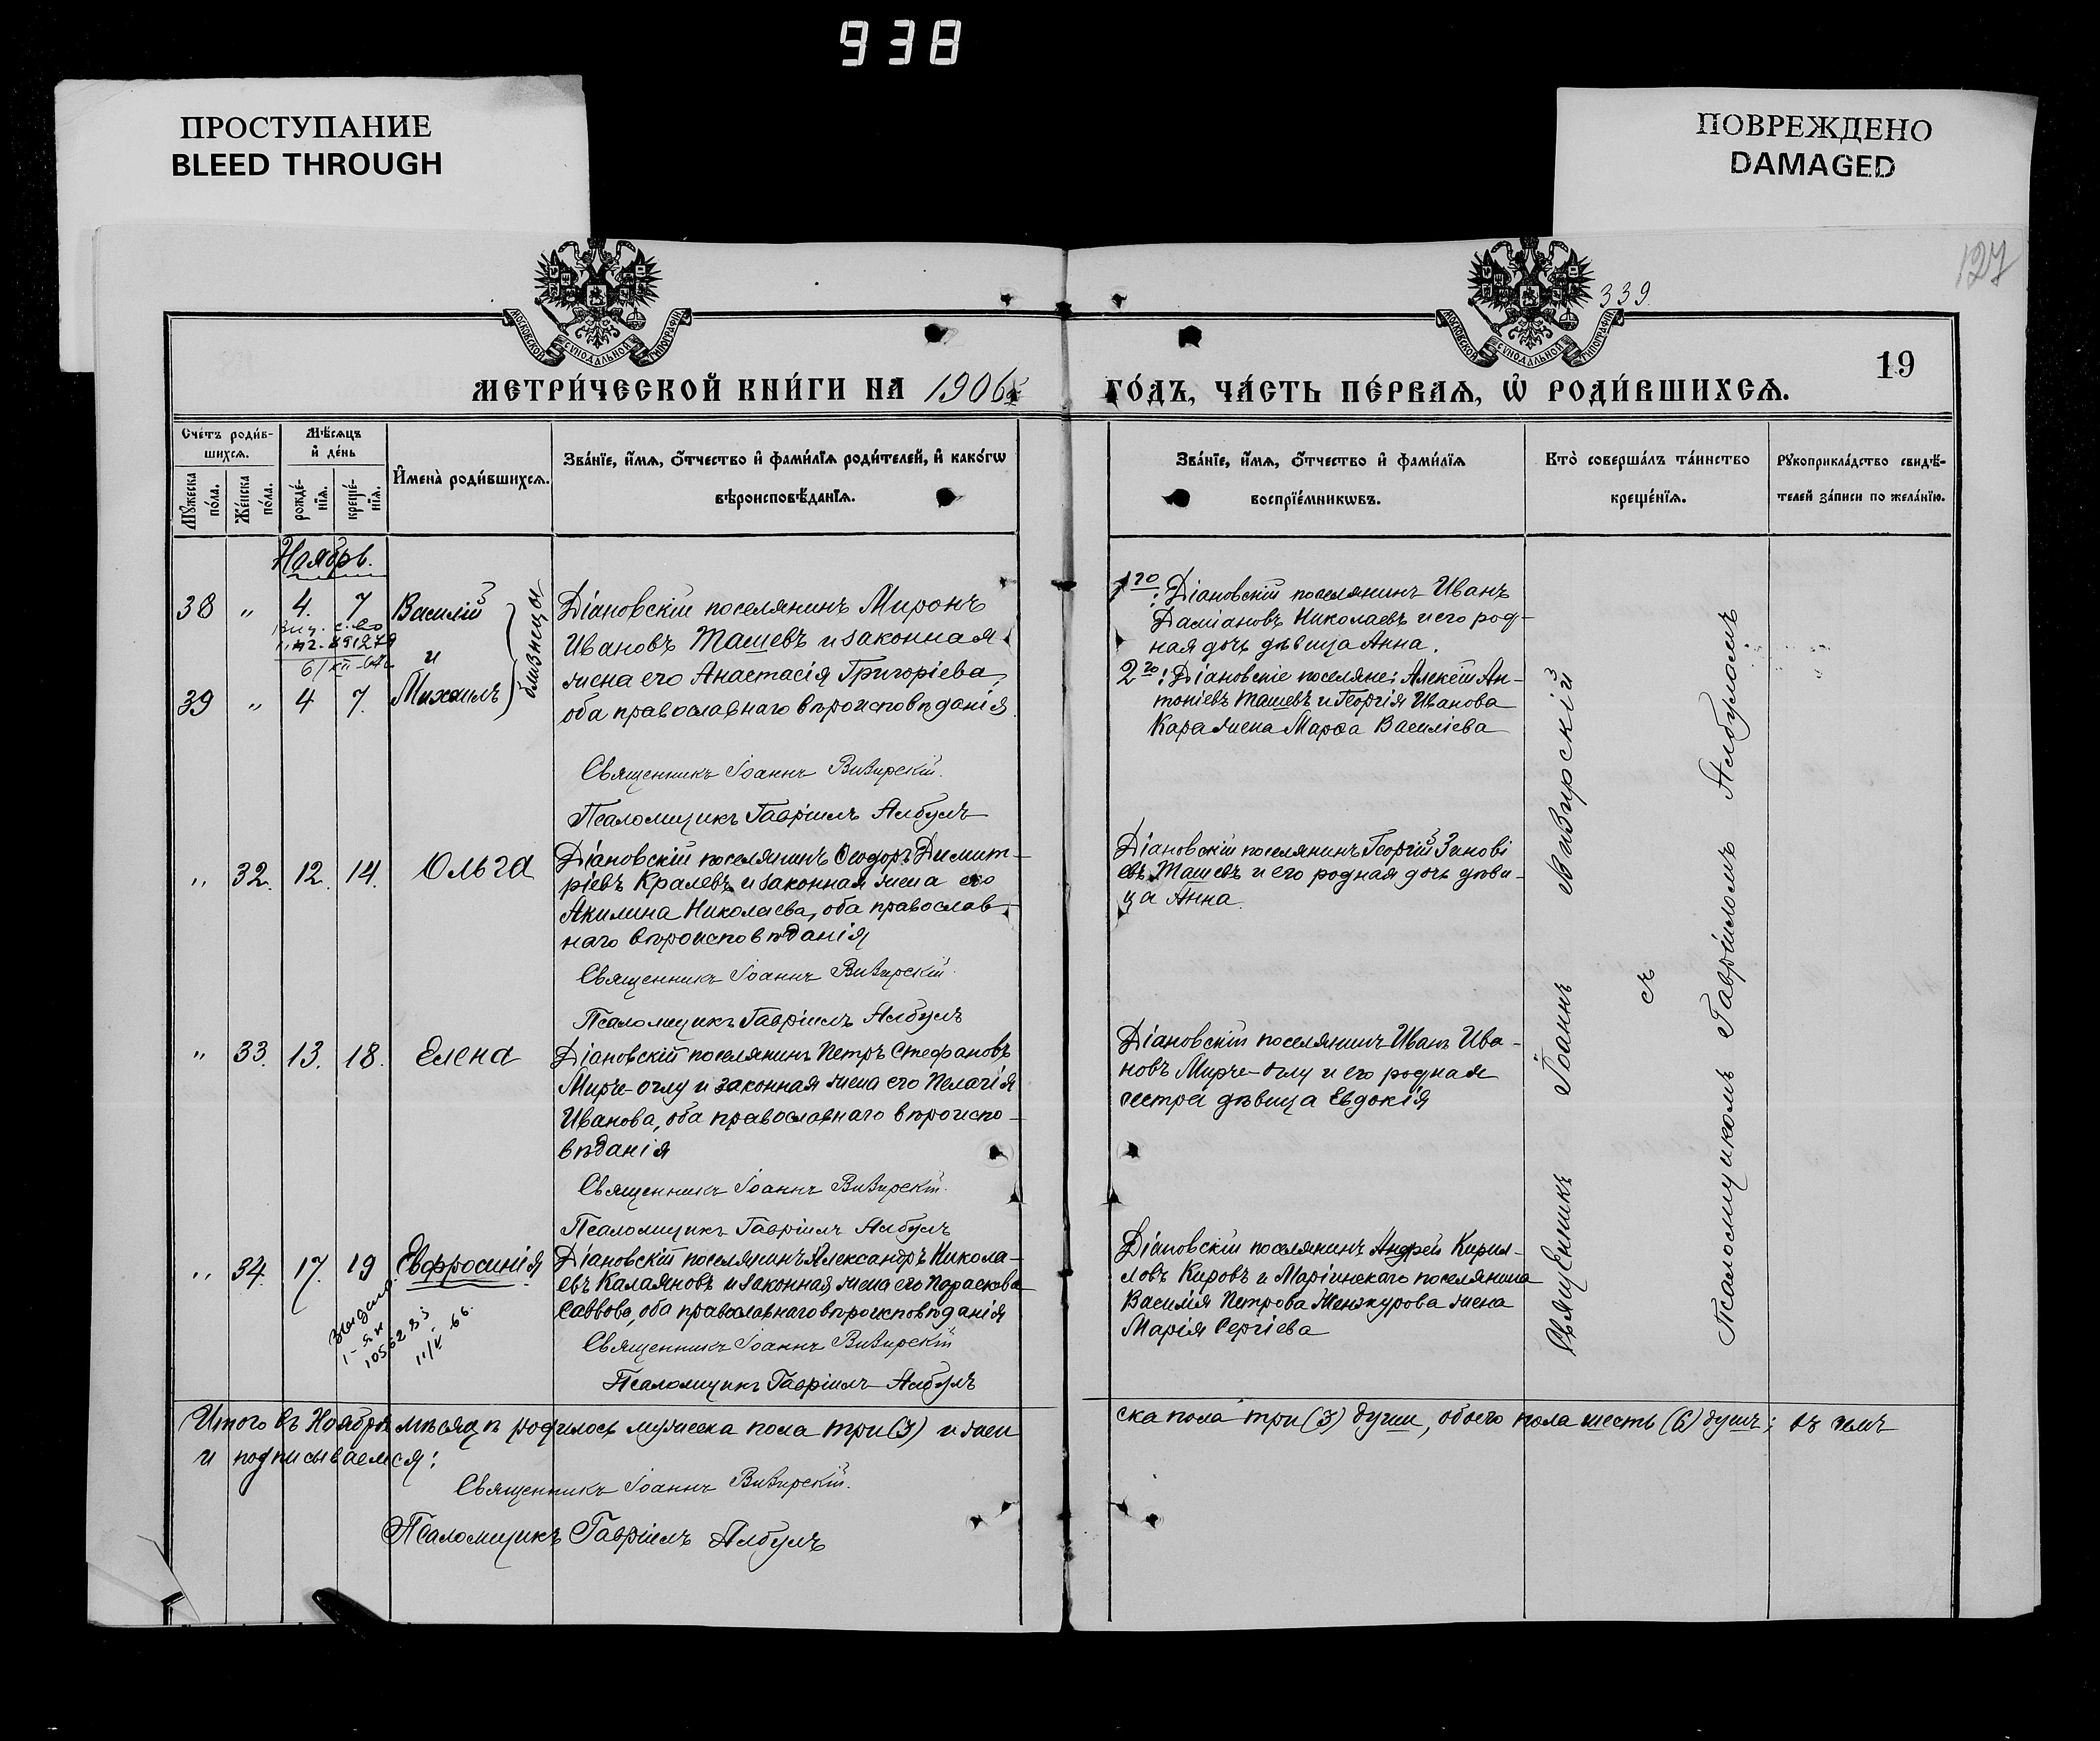 938
ПРОСТУПАНИЕ
BLEED THROUGH
ПОВРЕЖДЕНО
DAMAGED
127
339.
МОСКОВСКОЙ СѴНОДАЛЬНОЙ ТИПОГРАФІИ
МОСКОВСКОЙ СѴНОДАЛЬНОЙ ТИПОГРАФІИ
19
МЕТРИ́ЧЕСКОЙ КНИ́ГИ НА 1906й
ГО́ДЪ, ЧА́СТЬ ПЕ́РВАѦ, Ѡ҆ РОДИ́ВШИХСѦ.
Сче́тъ роди́в-
шихсѧ.
Мѣ́сѧцъ
и҆ де́нь
Мꙋ́жеска
по́ла.
Же́нска
по́ла.
рожде́-
нїѧ.
креще́-
нїѧ.
И҆мена̀ роди́вшихсѧ.
Зва́нїе, и҆́мѧ, ѻ҆́тчество и҆ фами́лїѧ роди́телей, и҆ како́гѡ
вѣроисповѣ́данїѧ.
Зва́нїе, и҆́мѧ, ѻ҆́тчество и҆ фами́лїѧ
воспрїе́мникѡвъ.
Кто̀ соверша́лъ та́инство
креще́нїѧ.
Рꙋкоприкла́дство свидѣ́-
телей за́писи по жела́нїю.
Ноябрь.
38 " 4. 7 Василій
и
39 " 4 7. Михаилъ
близнецы
Діановскій поселянинъ Миронъ
Ивановъ Ташевъ и законная
жена его Анастасія Григоріева,
оба православнаго вѣроисповѣданія
Священникъ Іоаннъ Вивирскій.
Псаломщикъ Гавріилъ Албулъ
1го: Діановскій поселянинъ Иванъ
Даміановъ Николаевъ и его род-
ная дочь дѣвица Анна.
2го: Діановскіе поселяне: Алексій Ан-
тоніевъ Ташевъ и Георгія Иванова
Кара жена Марѳа Василіева
" 32. 12. 14. Ольга
Діановскій поселянинъ Ѳеодоръ Димит-
ріевъ Кралевъ и законная жена его
Акилина Николаева, оба православ-
наго вѣроисповѣданія
Священникъ Іоаннъ Вивирскій.
Псаломщикъ Гавріилъ Албулъ
Діановскій поселянинъ Георгій Зинові
евъ Ташевъ и его родная дочь дѣви-
ца Анна.
" 33. 13. 18. Елена
Діановскій поселянинъ Петръ Стефановъ
Мирче-оглу и законная жена его Пелагія
Иванова, оба православнаго вѣроиспо-
вѣданія
Священникъ Іоаннъ Вивирскій.
Псаломщикъ Гавріилъ Албулъ
Діановскій поселянинъ Иванъ Ива-
новъ Мирче-оглу и его родная
сестра дѣвица Евдокія
" 34. 17. 19 Евфросинія
1056283
11/V 66.
Діановскій поселянинъ Александръ Никола-
евъ Калаяновъ и законная жена его Параскева
Саввова, оба православнаго вѣроисповѣданія
Священникъ Іоаннъ Вивирскій
Псаломщикъ Гавріилъ Албулъ
Діановскій поселянинъ Андрей Кирил-
ловъ Кировъ и Маріинскаго поселянина
Василія Петрова Женжурова жена
Марія Сергіева
Священникъ Іоаннъ Вивирскій
съ
Псаломщикомъ Гавріиломъ Албуломъ
Итого въ Ноябрѣ мѣсяцѣ родилось мужеска пола три (3) и жен
ска пола три (3) души, обоего пола шесть (6) душъ; въ чемъ
и подписываемся:
Священникъ Іоаннъ Вивирскій.
Псаломщикъ Гавріилъ Албулъ